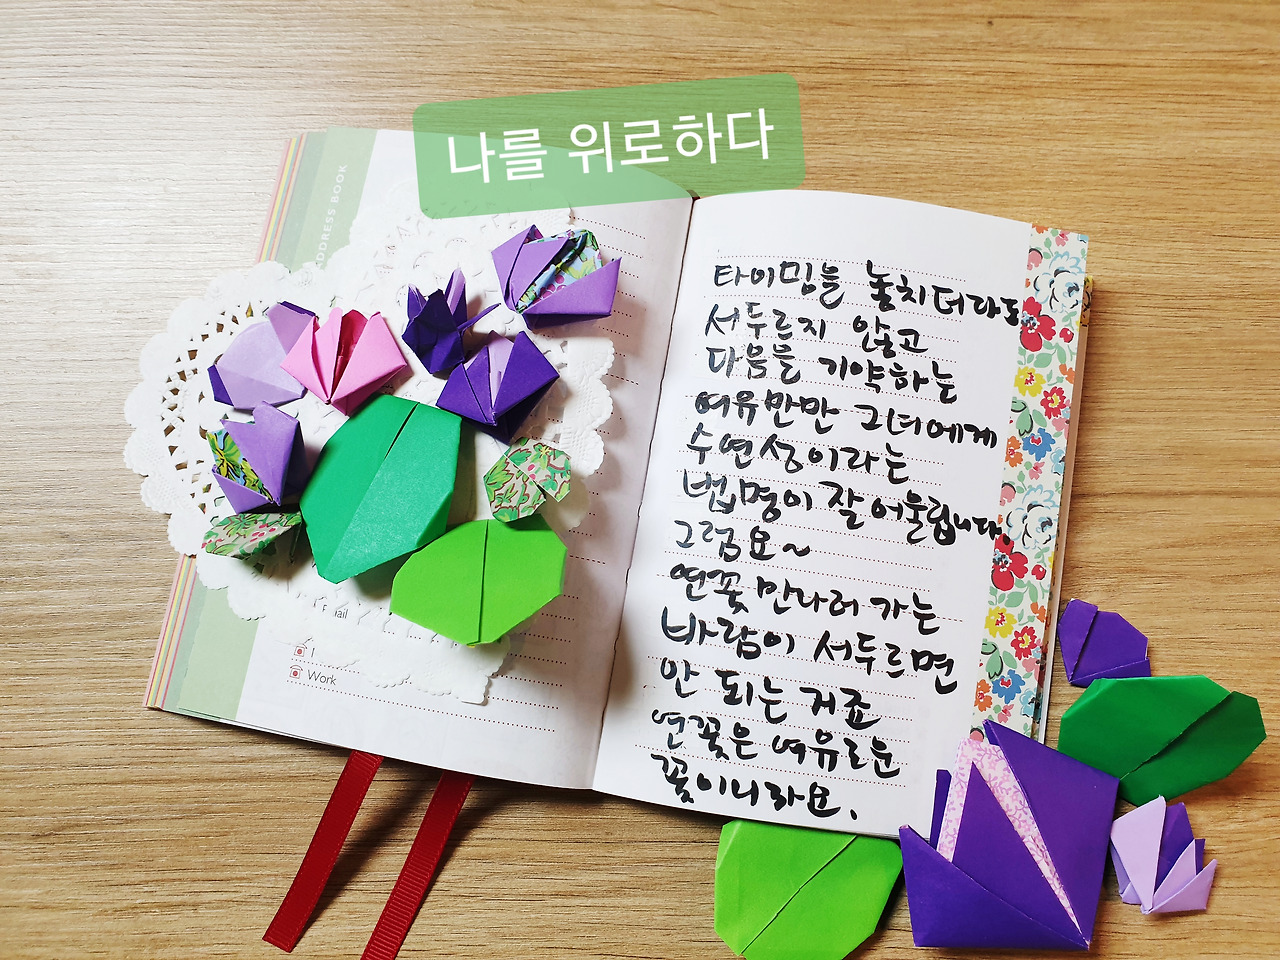 나를 위로하다
ADDRESS BOOK
타이밍을 놓치더라도
서두르지 않고
다음을 기약하는
여유만만 그녀에게
수연성이라는
법명이 잘 어울립니다.
그럼요~
연꽃 만나러 가는
바람이 서두르면
안 되는 거죠
연꽃은 여유로운
꽃이니라요.
Work